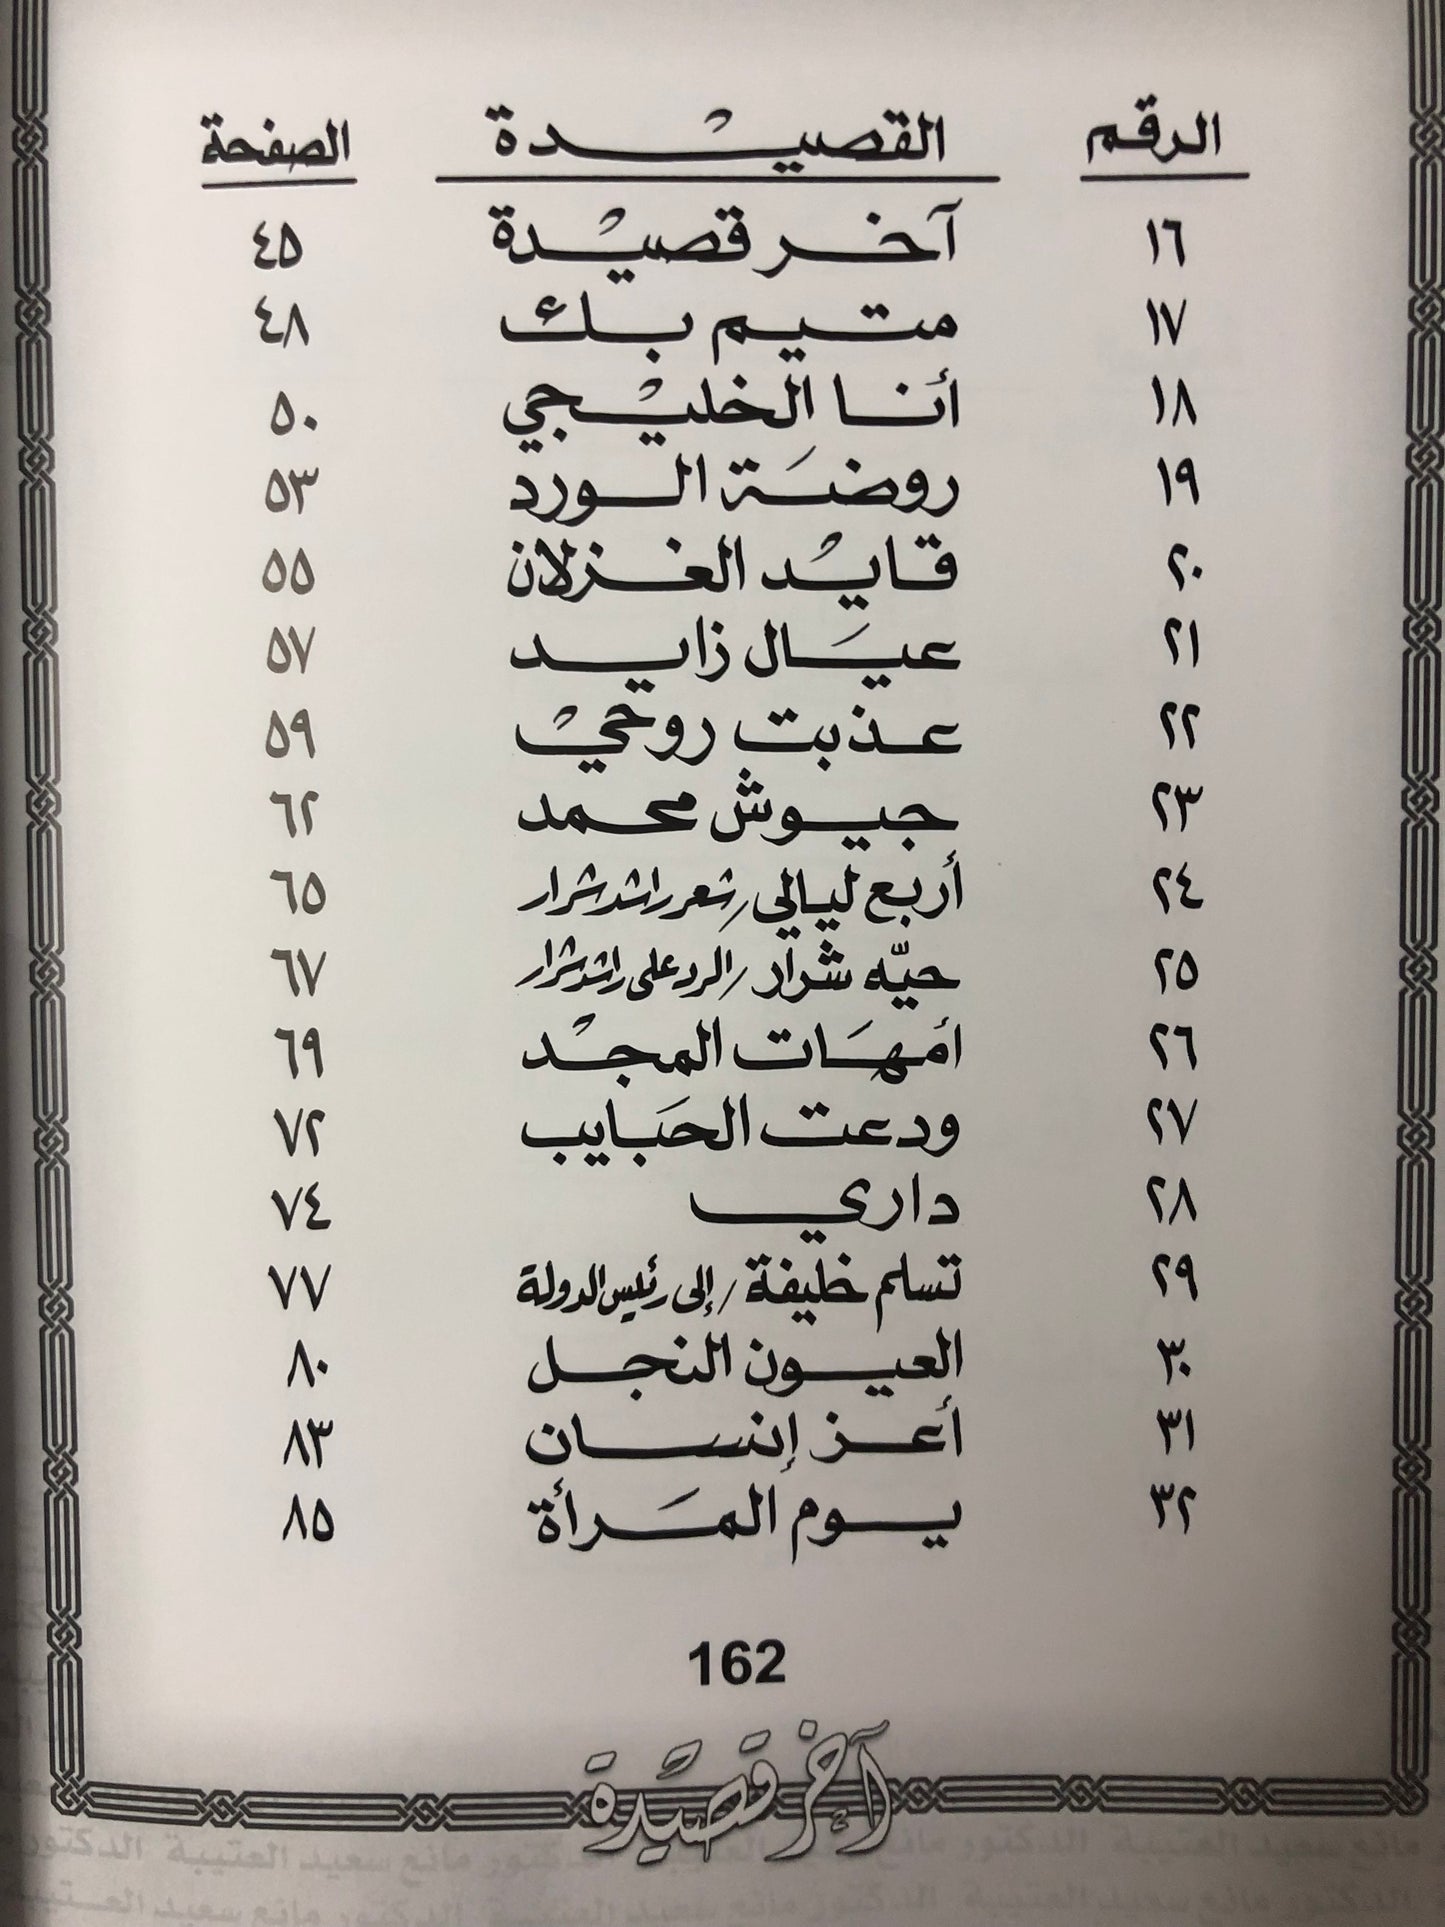 الرقم القصيدة الصفحة
١٦ آخر قصيدة ٤٥
١٧ متيم بك ٤٨
١٨ أنا الخليجي ٥٠
١٩ روضة الورد ٥٣
٢٠ قايد الغزلان ٥٥
٢١ عيال زايد ٥٧
٢٢ عذبت روحي ٥٩
٢٣ جيوش محمد ٦٢
٢٤ أربع ليالي / شعر راشد شرار ٦٥
٢٥ حيّه شرار / الرد على راشد شرار ٦٧
٢٦ أمهات المجد ٦٩
٢٧ ودعت الحبايب ٧٢
٢٨ داري ٧٤
٢٩ تسلم خليفة / إلى رئيس الدولة ٧٧
٣٠ العيون النجل ٨٠
٣١ أعز إنسان ٨٣
٣٢ يوم المرأة ٨٥
162
آخر قصيدة
مانع سعيد العتيبة الدكتور مانع سعيد العتيبة الدكتور
الدكتور مانع سعيد العتيبة الدكتور مانع سعيد العتيبة الدكتور مانع سعيد